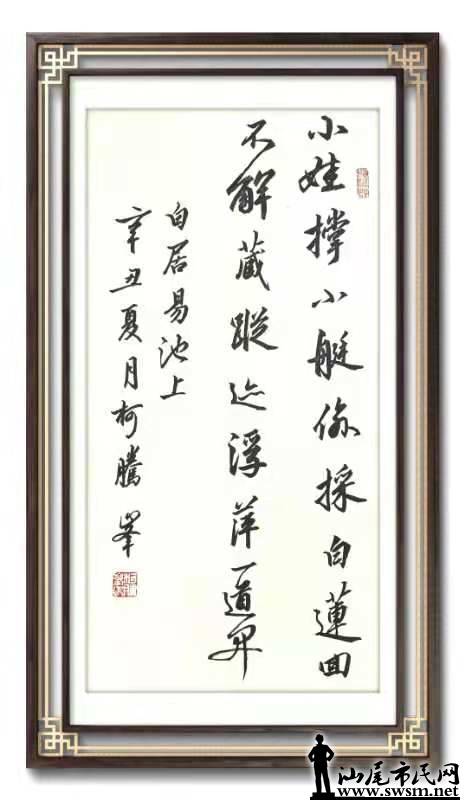 小娃撑小艇偷採白蓮回
不解藏蹤迹浮萍一道開
白居易池上
辛丑夏月柯騰峯
汕尾市民网
www.swsm.net